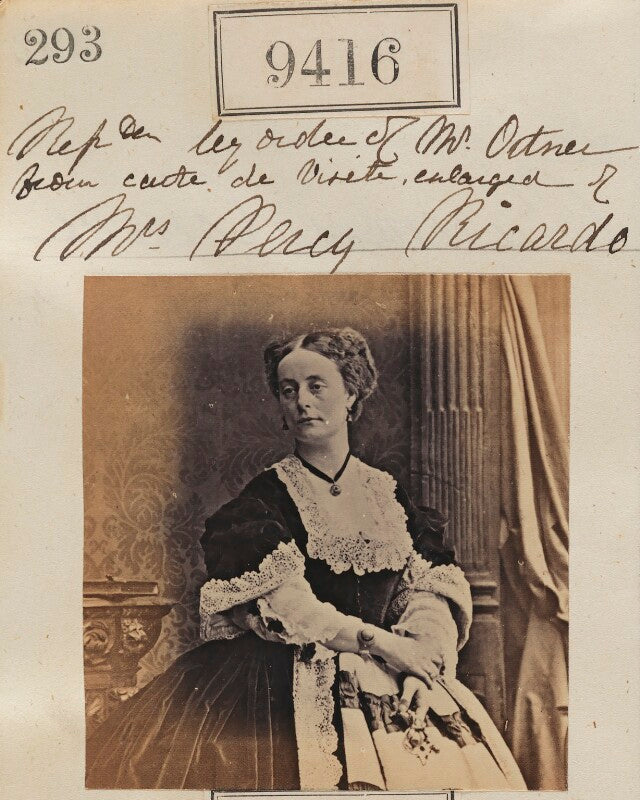 293
9416
Rep<sup>den</sup> by order of Mr. Ortner
from carte de Visite, enlarged of
Mrs Percy Ricardo